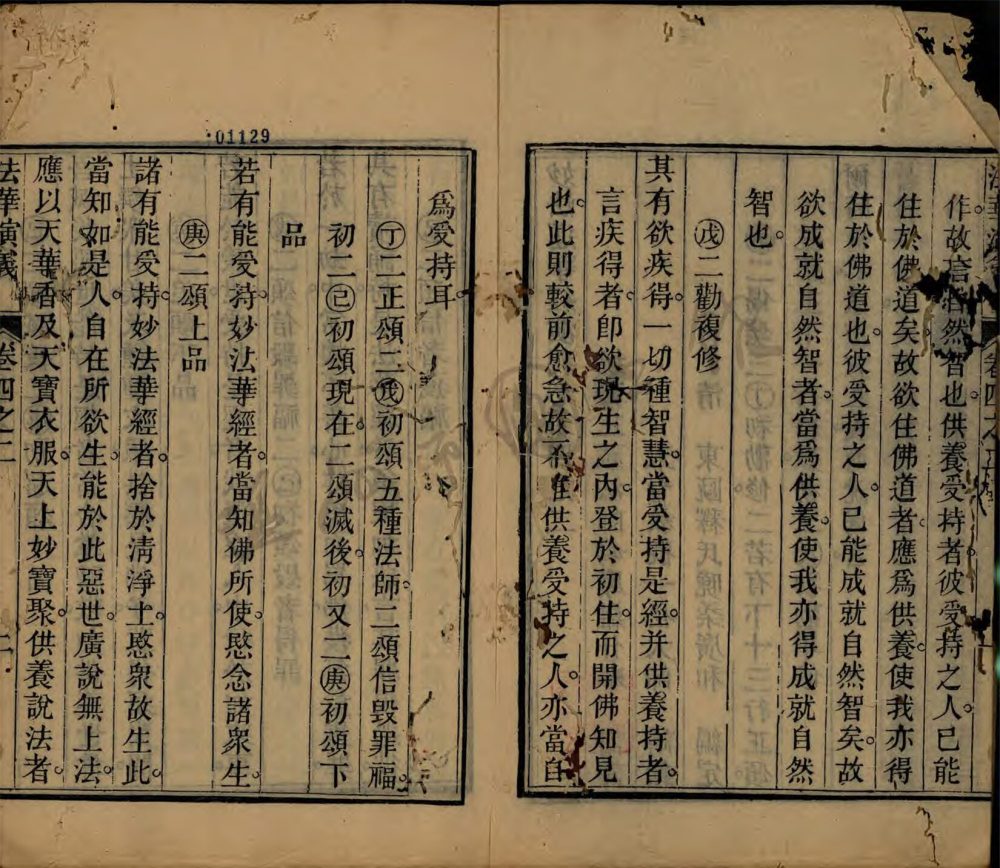 作故言自然智也供養受持者彼受持之人已能
住於佛道矣故欲住佛道者應爲供養使我亦得
住於佛道也彼受持之人已能成就自然智矣故
欲成就自然智者當爲供養使我亦得成就自然
智也
戊二勸複修
其有欲疾得一切種智慧當受持是經并供養持者
言疾得者卽欲現生之內登於初住而開佛知見
也此則較前愈急故不唯供養受持之人亦當自
爲受持耳
丁二正頌二戊初頌五種法師二頌信毀罪福
初二己初頌現在二頌滅後初又二庚初頌下
品
若有能受持妙法華經者當知佛所使愍念諸衆生
庚二頌上品
諸有能受持妙法華經者捨於淸淨土愍衆故生此
當知如是人自在所欲生能於此惡世廣說無上法
應以天華香及天寶衣服天上妙寶聚供養說法者
法華演義 卷四之二 二
01129